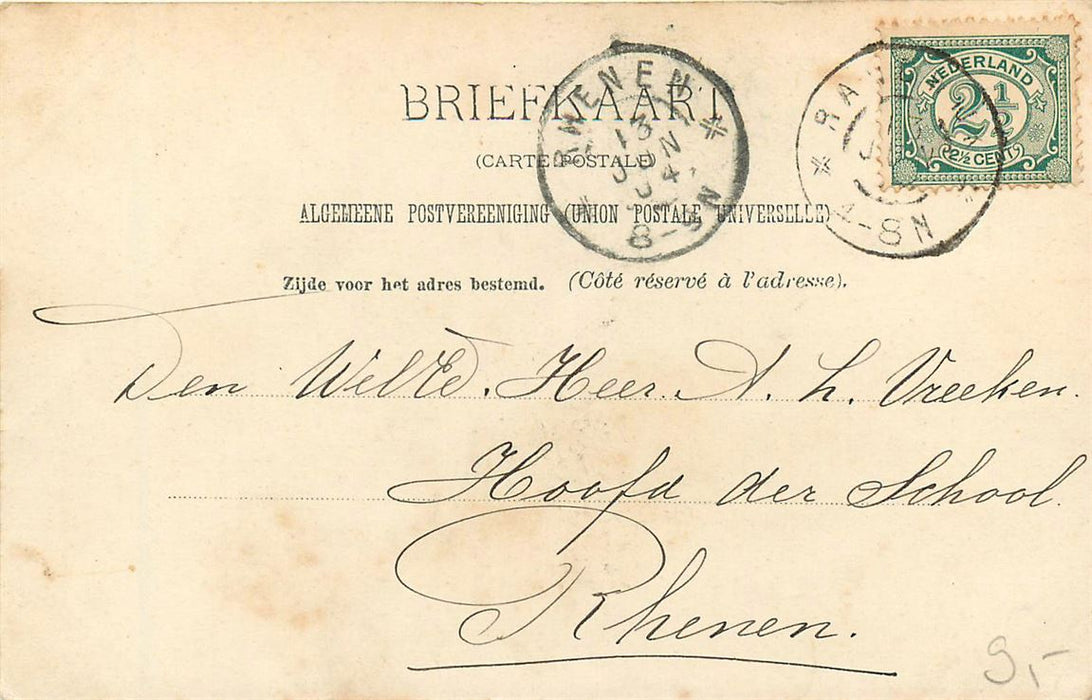 BRIEFKAART
(CARTE POSTALE)
ALGEMEENE POSTVEREENIGING (UNION POSTALE UNIVERSELLE)
Zijde voor het adres bestemd. (Côté réservé à l'adresse).
RHENEN
13
JUN
04
8-9N
NEDERLAND
2½
2½ CENT
4-8N
Den WelEd. Heer A. L. Vreeken.
Hoofd der School.
Rhenen.
9,-